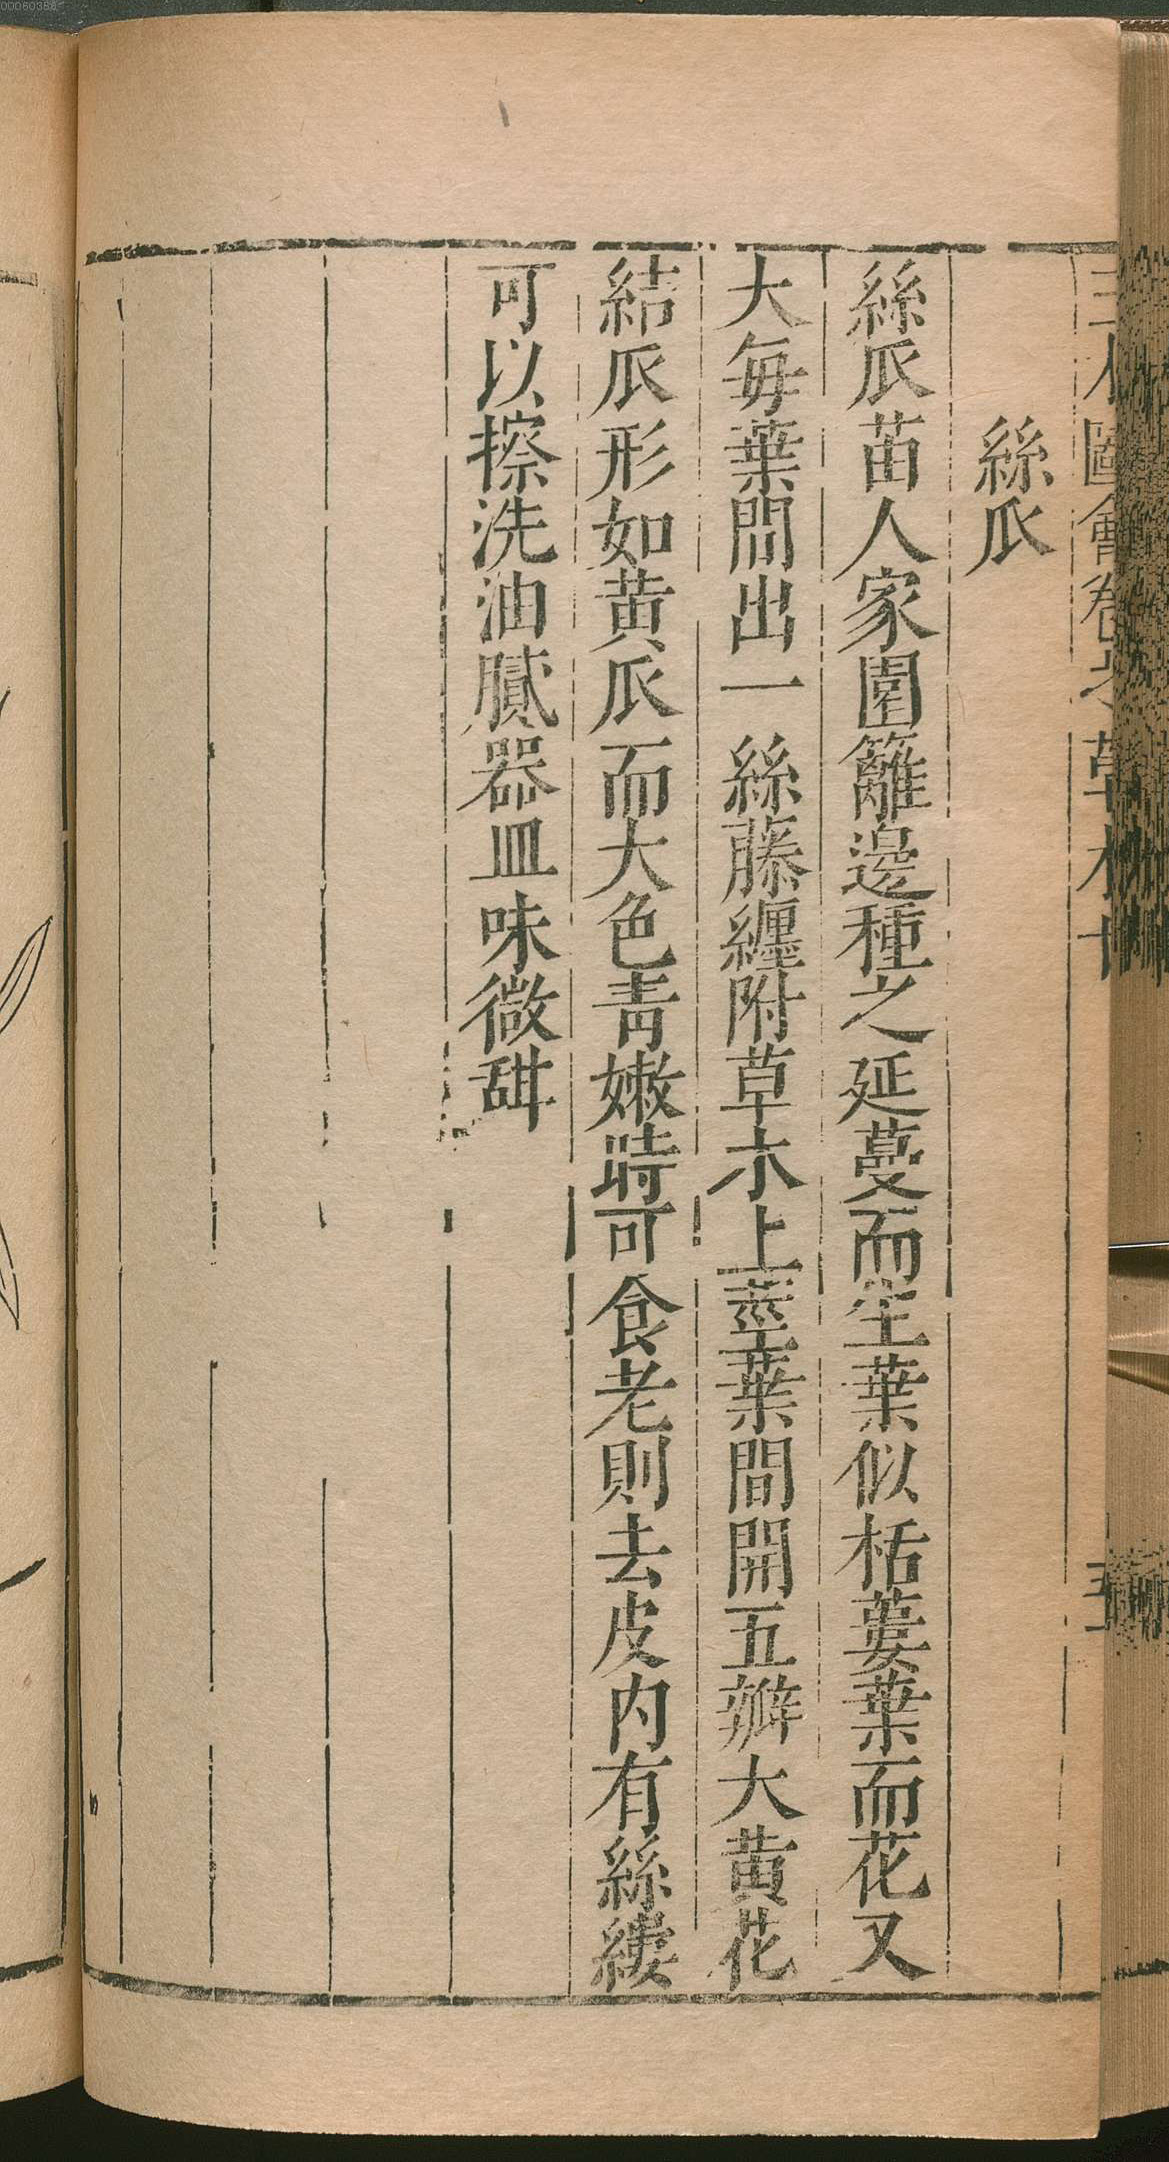 絲瓜
絲瓜苗人家園籬邊種之延蔓而生葉似栝蔞葉而花又
大每葉間出一絲藤纏附草木上莖葉間開五瓣大黃花
結瓜形如黃瓜而大色青嫩時可食老則去皮內有絲縷
可以擦洗油膩器皿味微甜
00060388